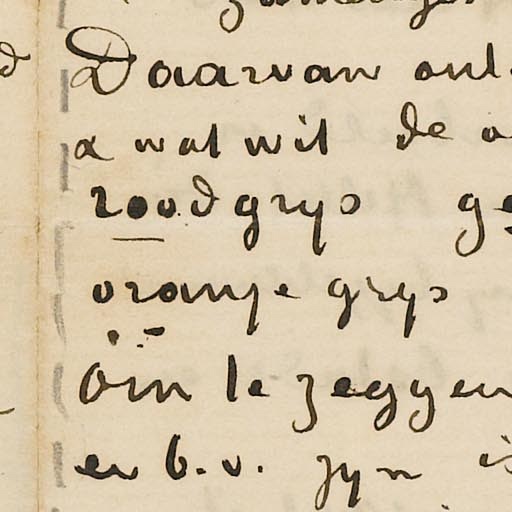 Daarvan ont
a wat wit de
roodgrys
oranje grys
Om te zeggen
en b.v. zyn is